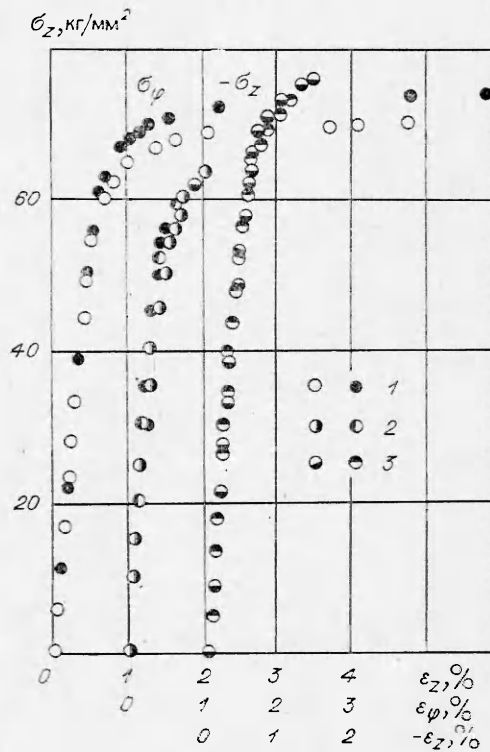 σz, кг/мм²
σφ -σz
60
40
1
2
3
20
0
0 1 2 3 4 εz, %
0 1 2 3 εφ, %
0 1 2 -εz, %